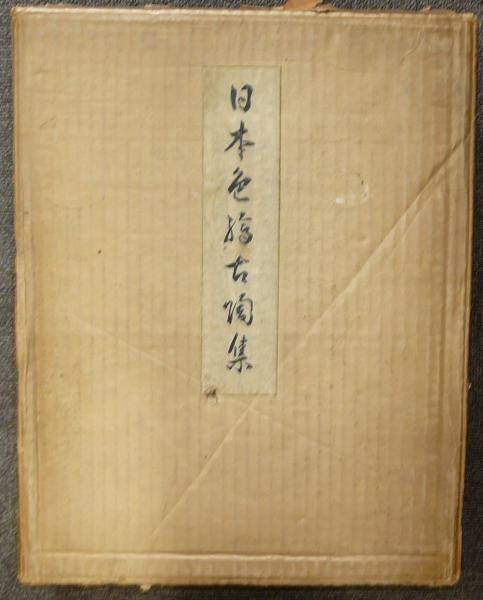 日本色繪古陶集